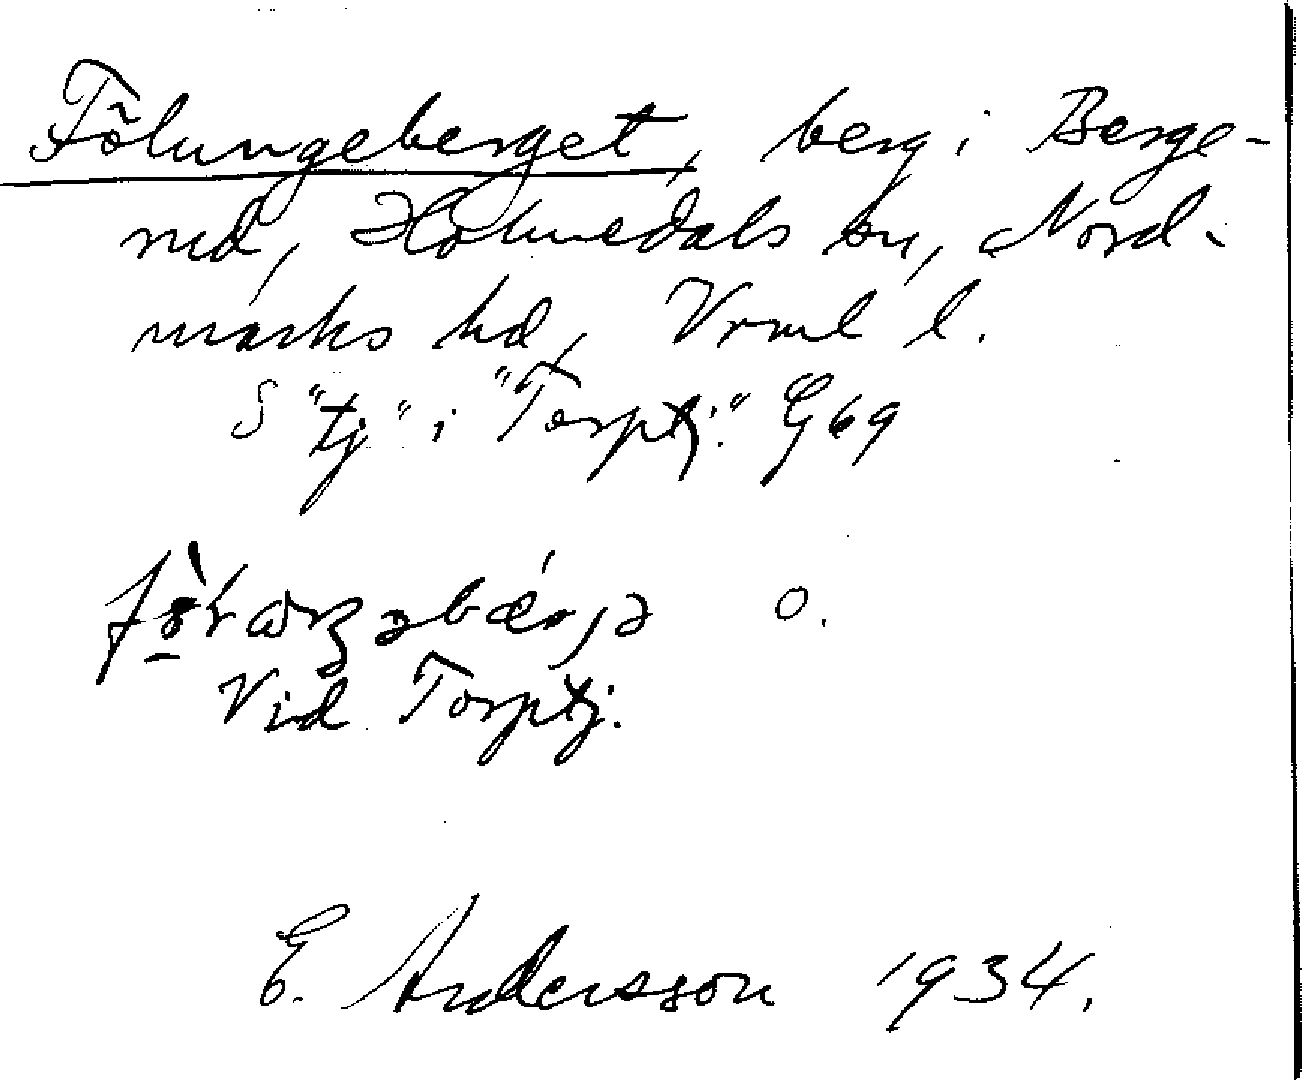 Fölungeberget, berg i Berge-
rud, Holmedals sn, Nord-
marks hd, Vrml l.
S "tj" i "Torptj." G 69
O.
Vid Torptj.
E. Andersson 1934.